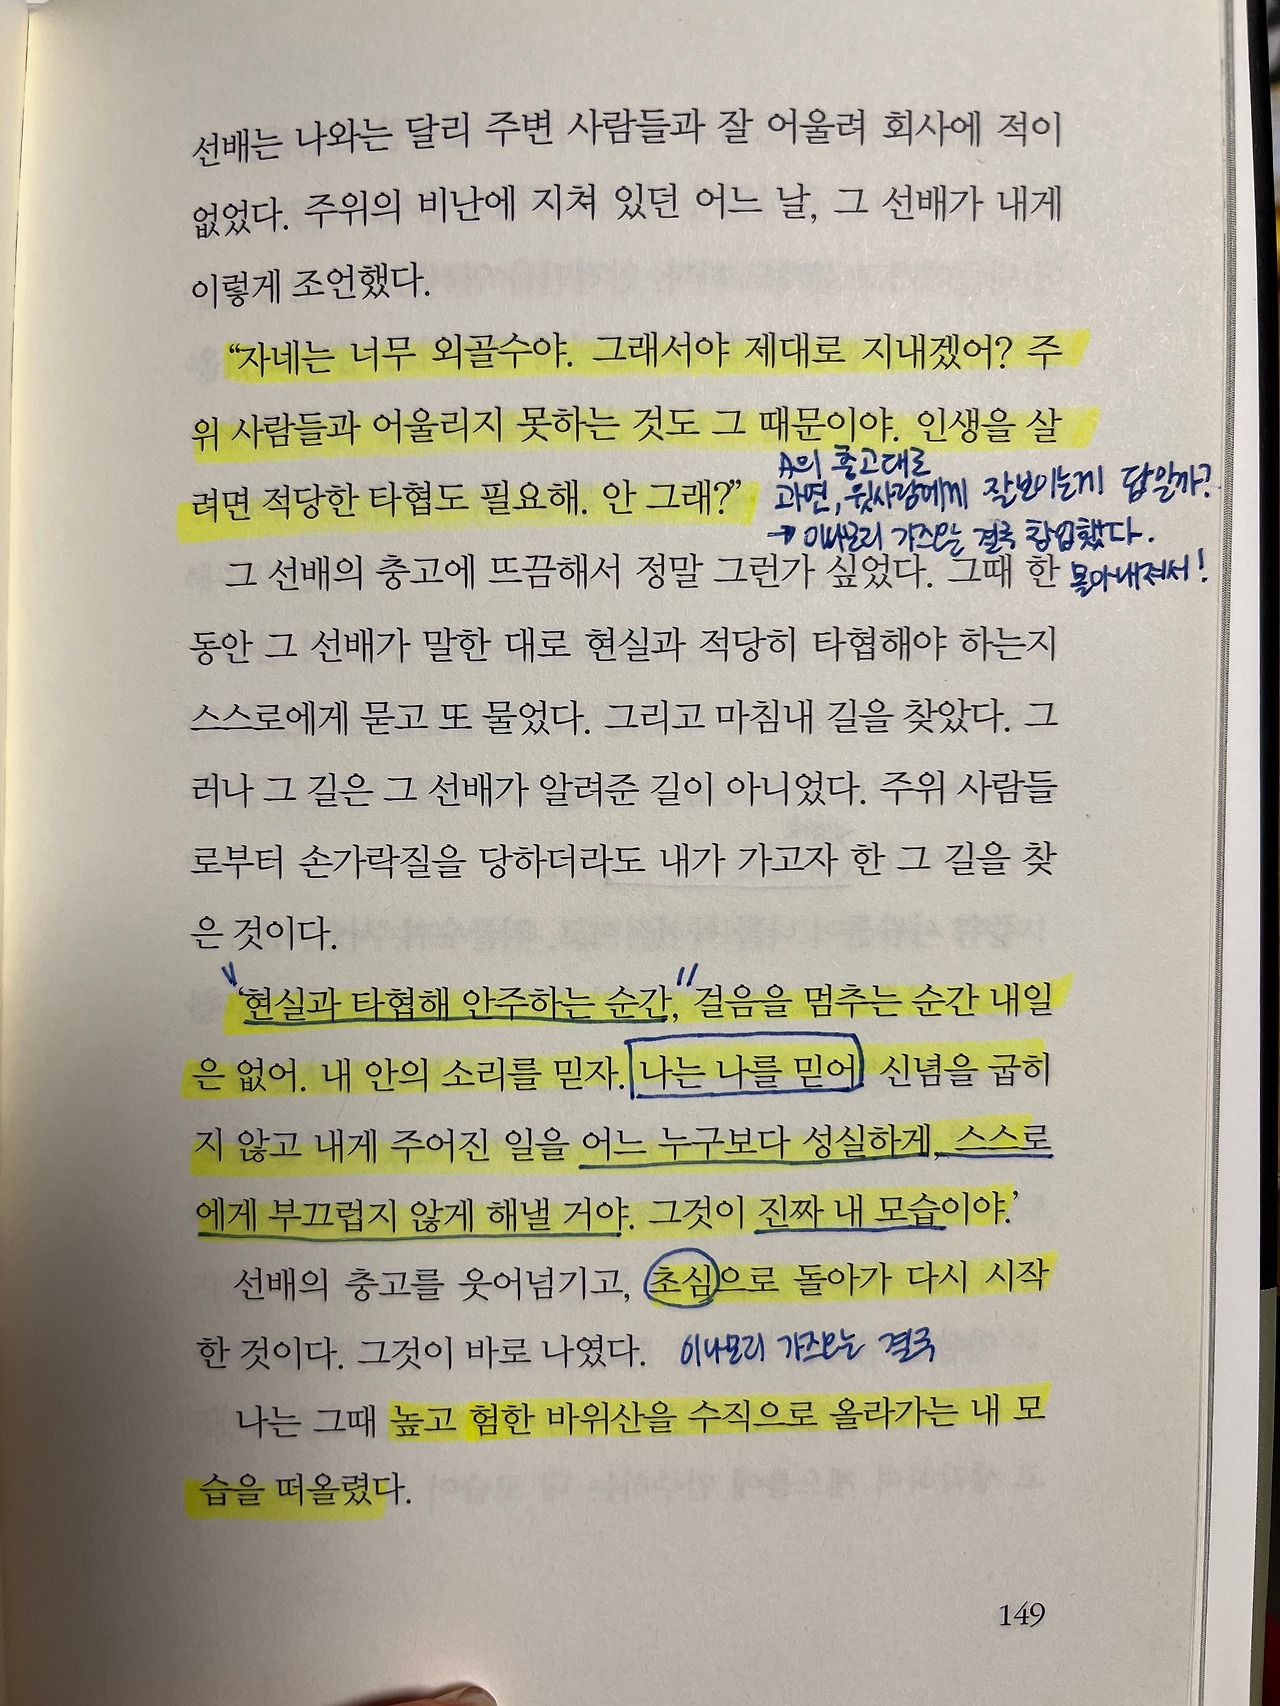 선배는 나와는 달리 주변 사람들과 잘 어울려 회사에 적이
없었다. 주위의 비난에 지쳐 있던 어느 날, 그 선배가 내게
이렇게 조언했다.
“자네는 너무 외골수야. 그래서야 제대로 지내겠어? 주
위 사람들과 어울리지 못하는 것도 그 때문이야. 인생을 살
A의 충고대로
려면 적당한 타협도 필요해. 안 그래?” 과연, 윗사람에게 잘보이는게 답일까?
→ 이나모리 가즈오는 결국 창업했다.
그 선배의 충고에 뜨끔해서 정말 그런가 싶었다. 그때 한 몰아내져서!
동안 그 선배가 말한 대로 현실과 적당히 타협해야 하는지
스스로에게 묻고 또 물었다. 그리고 마침내 길을 찾았다. 그
러나 그 길은 그 선배가 알려준 길이 아니었다. 주위 사람들
로부터 손가락질을 당하더라도 내가 가고자 한 그 길을 찾
은 것이다.
‘현실과 타협해 안주하는 순간, 걸음을 멈추는 순간 내일
은 없어. 내 안의 소리를 믿자. 나는 나를 믿어. 신념을 굽히
지 않고 내게 주어진 일을 어느 누구보다 성실하게, 스스로
에게 부끄럽지 않게 해낼 거야. 그것이 진짜 내 모습이야.’
선배의 충고를 웃어넘기고, 초심으로 돌아가 다시 시작
한 것이다. 그것이 바로 나였다. 이나모리 가즈오는 결국
나는 그때 높고 험한 바위산을 수직으로 올라가는 내 모
습을 떠올렸다.
149